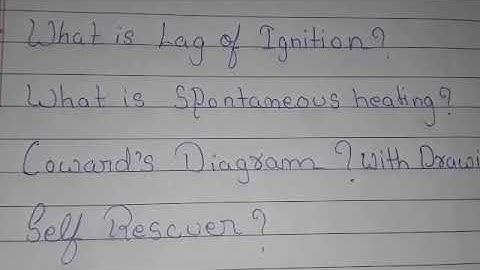 What is Lag of Ignition?
What is Spontaneous heating?
Coward's Diagram? with Drawi
Self Rescuer?